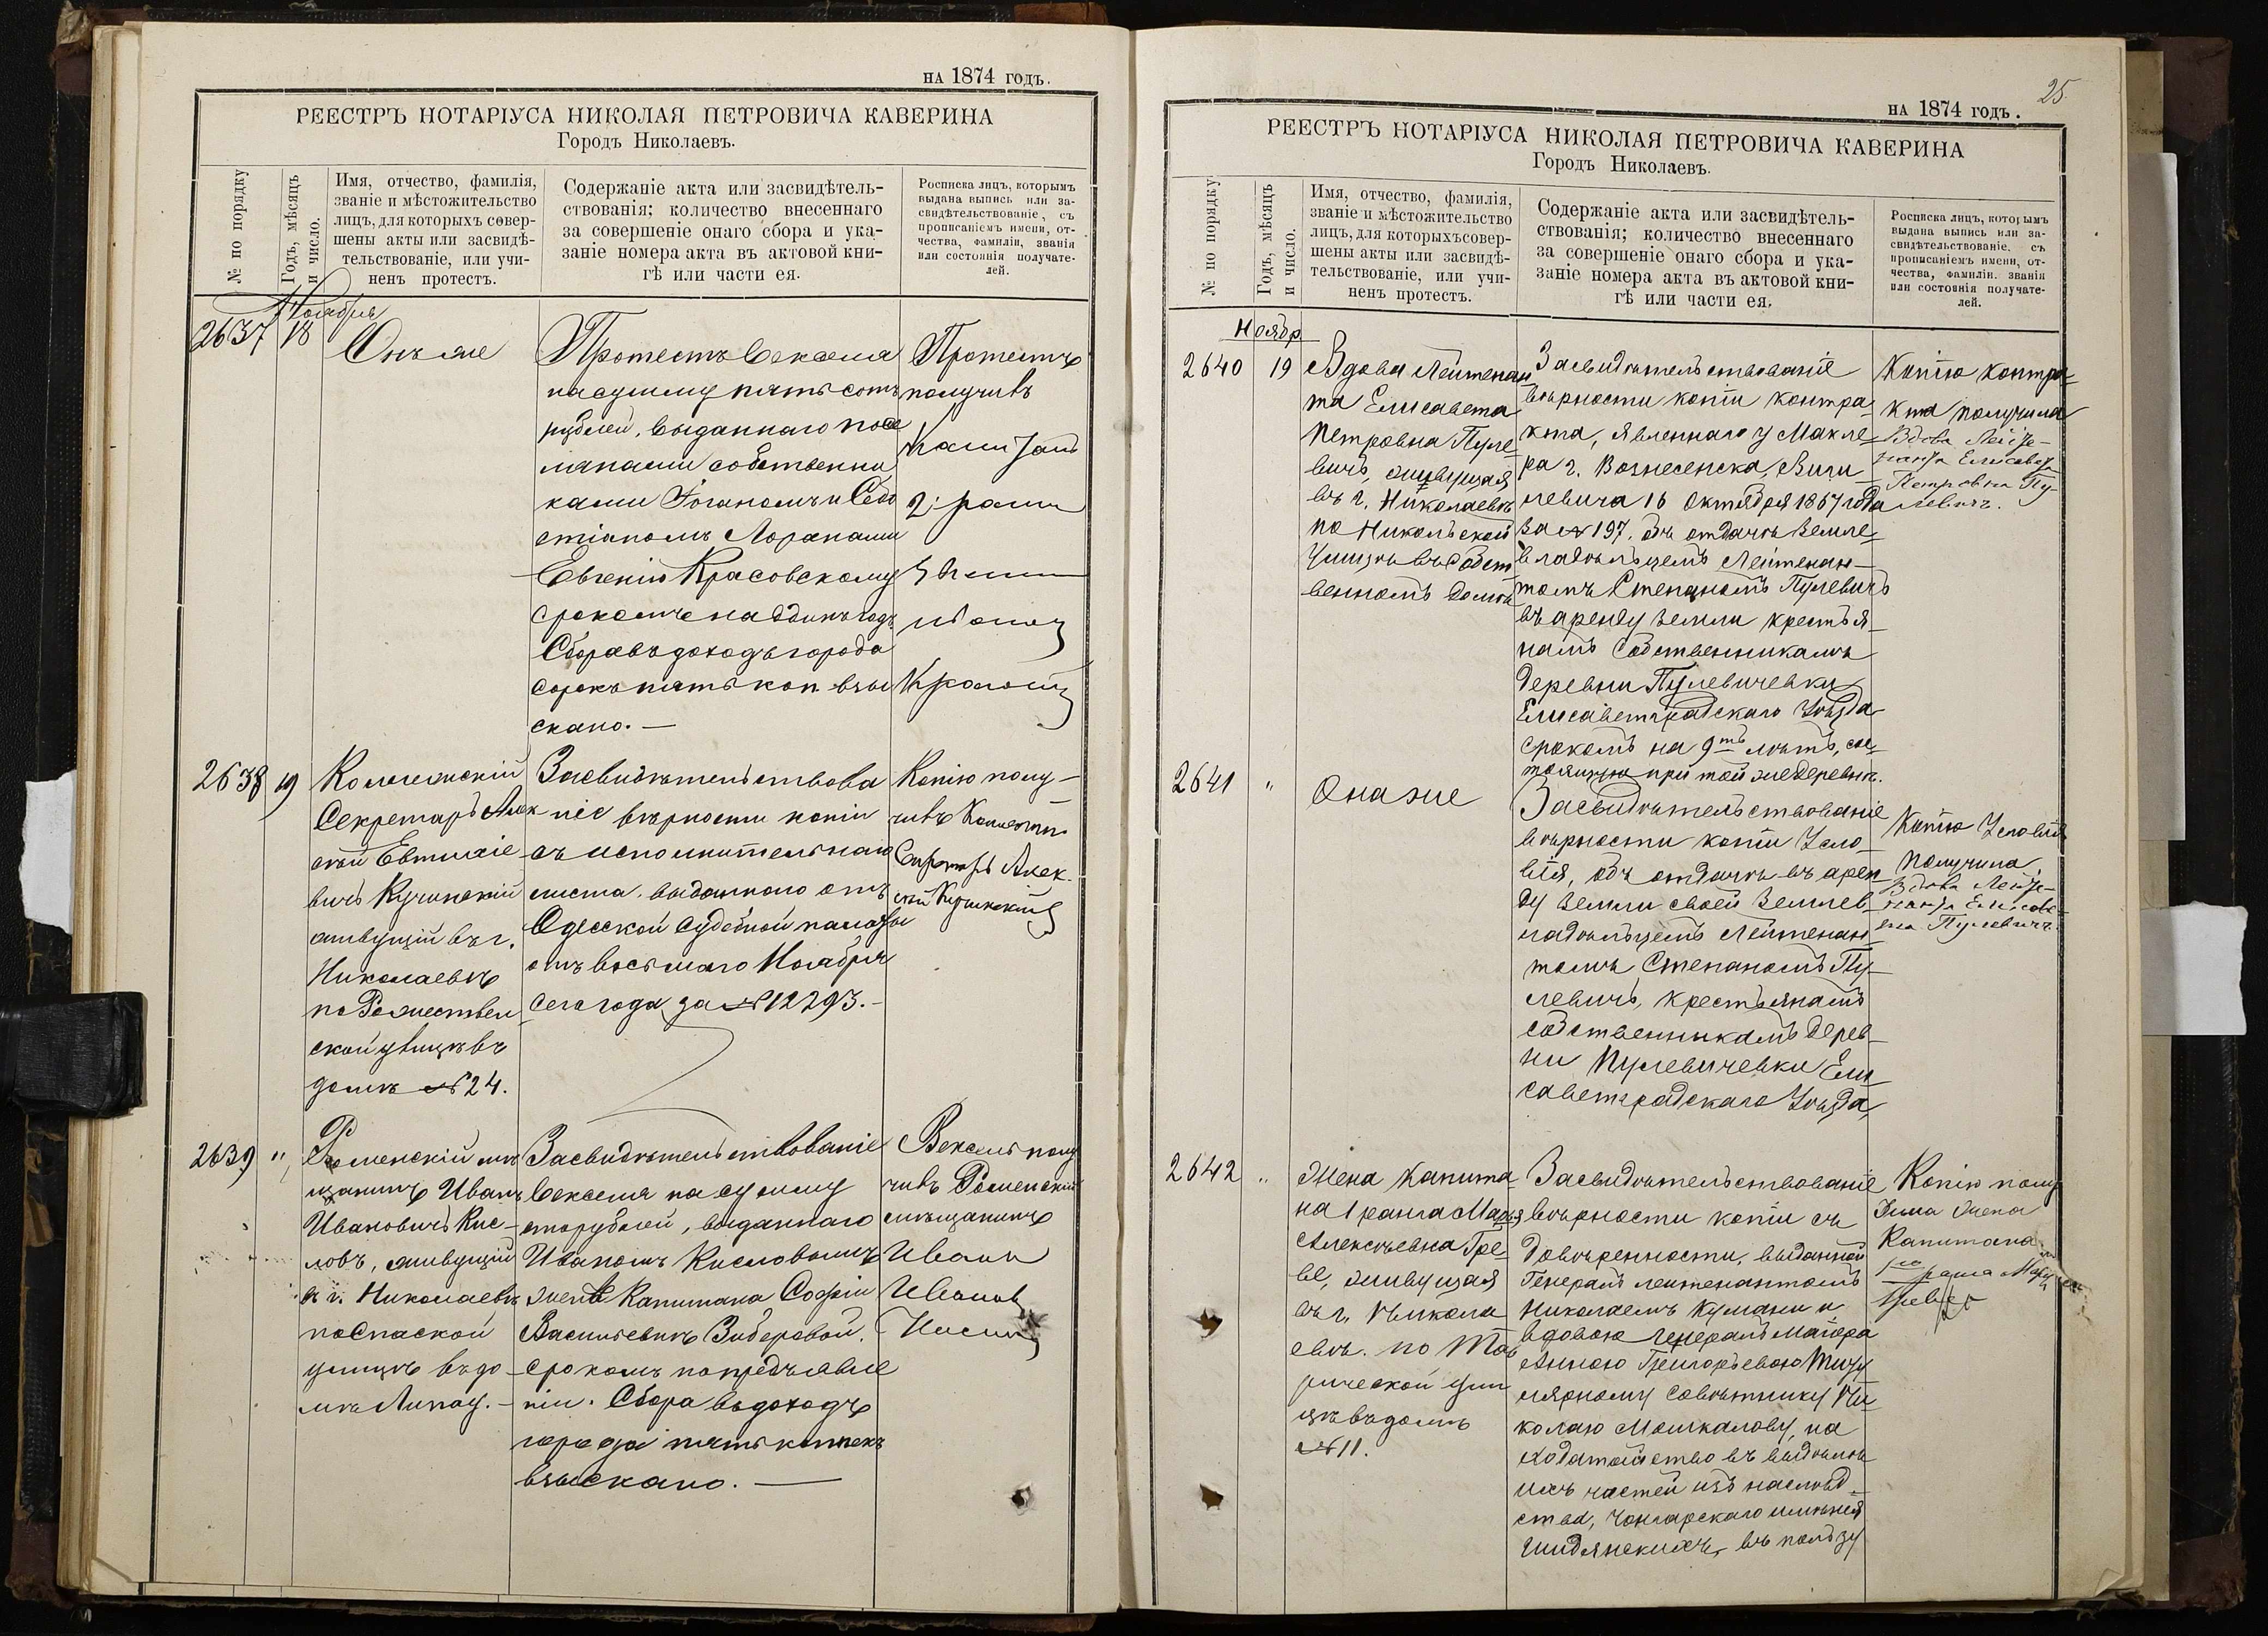 НА 1874 ГОДЪ.
РЕЕСТРЪ НОТАРІУСА НИКОЛАЯ ПЕТРОВИЧА КАВЕРИНА
Городъ Николаевъ.
№ по порядку
Годъ, мѣсяцъ
и число.
Имя, отчество, фамилія,
званіе и мѣстожительство
лицъ, для которыхъ совер-
шены акты или засвидѣ-
тельствованіе, или учи-
ненъ протестъ.
Содержаніе акта или засвидѣтель-
ствованія; количество внесеннаго
за совершеніе онаго сбора и ука-
заніе номера акта въ актовой кни-
гѣ или части ея.
Росписка лицъ, которымъ
выдана выпись или за-
свидѣтельствованіе, съ
прописаніемъ имени, от-
чества, фамиліи, званія
или состоянія получате-
лей.
Ноябрь
2637
18
Онъ же
Протестъ векселя
на сумму пять сотъ
рублей, выданнаго посе
лянами собственни
камы Іоганомъ и Себа
стіаномъ Лоранами
Евгенію Красовскому
срокомъ на одинъ годъ
Сбора въ доходъ города
сорокъ пять коп взы
скано. —
Протестъ
получивъ
Капитанъ
2: ранга
2638
19
Коллежскій
Секретарь Алек
сѣй Евтихіе
вичъ Кучинскій
живущій въ г.
Николаевѣ
по Рожествен
ской улицѣ въ
домѣ № 24.
Засвидѣтельствова
ніе вѣрности копіи
съ исполнительнаго
листа, выданнаго отъ
Одесской Судебной палаты
отъ восьмаго Ноября
сего года за № 12293. —
Копію полу-
чивъ Коллежскій
Секретарь Алек-
сѣй Кучинскій
2639
"
Роменскій мѣ
щанинъ Иванъ
Ивановичъ Кис-
ловъ, живущій
въ г. Николаевѣ
по Спаской
улицѣ въ до-
мѣ Липау. —
Засвидѣтельствованіе
векселя на сумму
сто рублей, выданнаго
Иваномъ Кисловымъ
женѣ Капитана Софіи
Васильевнѣ Зиберовой,
срокомъ по предъявле
ніи. Сбора въ доходъ
города пять копѣекъ
взыскано. —
Вексель полу
чивъ Роменскій
мѣщанинъ
Иванъ
Ивановъ
25.
НА 1874 ГОДЪ.
РЕЕСТРЪ НОТАРІУСА НИКОЛАЯ ПЕТРОВИЧА КАВЕРИНА
Городъ Николаевъ.
№ по порядку
Годъ, мѣсяцъ
и число.
Имя, отчество, фамилія,
званіе и мѣстожительство
лицъ, для которыхъ совер-
шены акты или засвидѣ-
тельствованіе, или учи-
ненъ протестъ.
Содержаніе акта или засвидѣтель-
ствованія; количество внесеннаго
за совершеніе онаго сбора и ука-
заніе номера акта въ актовой кни-
гѣ или части ея.
Росписка лицъ, которымъ
выдана выпись или за-
свидѣтельствованіе, съ
прописаніемъ имени, от-
чества, фамиліи, званія
или состоянія получате-
лей.
Ноябр
2640
19
Вдова Лейтенан
та Елисавета
Петровна Пуле
вичъ, живущая
въ г. Николаевѣ
по Никольской
Улицѣ въ собст
венномъ домѣ
Засвидѣтельствованіе
вѣрности копіи контра
кта, явленнаго у Макле
ра г. Вознесенска,
левича 16 Октября 1867 года
за № 197. объ отдачѣ Земле
владѣльцемъ Лейтенан-
томъ Степаномъ Пулевичъ
въ аренду земли крестья-
намъ собственникамъ
деревни Пулевичевки
Елисаветградскаго Уѣзда
срокомъ на 9ть лѣтъ, сос
тоящую при той же деревнѣ.
Копію контра
кта получила
Вдова Лейте-
нанта Елисавета
Петровна Пу-
левичъ.
2641
"
Она же
Засвидѣтельствованіе
вѣрности копіи Усло
вія, объ отдачѣ въ арен
ду земли своей Землев
ладѣльцемъ Лейтенан
томъ Степаномъ Пу-
левичъ, крестьянамъ
собственникамъ дерев-
ни Пулевичевки Ели
саветградскаго Уѣзда
Копію Условія
получила
Вдова Лейте-
нанта Елисаве-
та Пулевичъ.
2642
"
Жена Капита
на 1 ранга Марья
Алексѣевна Гре
ве, живущая
въ г. Никола
евѣ. по Тав
рической ули
цѣ въ домѣ
№ 11.
Засвидѣтельствованіе
вѣрности копіи съ
довѣренности, выданной
Генералъ лейтенантомъ
Николаемъ Кумани и
вдовою генералъ Маіора
Анною Григорьевою Титу
лярному Совѣтнику Ни
колаю Мошкалову, на
ходатайство въ выдѣлѣ
ихъ частей изъ наслѣд-
ства, Чонгарскаго имѣнія
въ пользу
Копію полу
чила жена
Капитана
1го ранга Марья
Греве